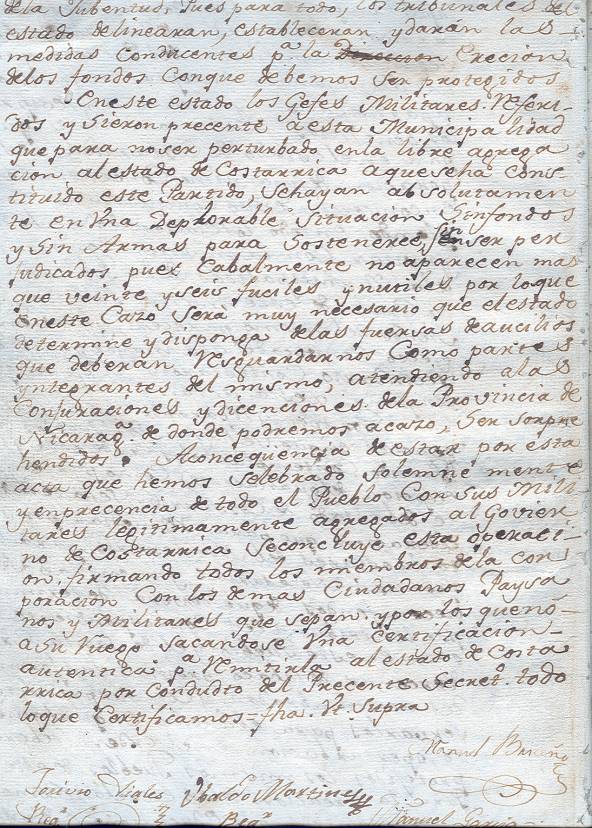 de la Jubentud. Pues para todo, los tribunales del
estado delinearan, estableceran, y daran las
medidas conducentes pª. la Direccion Erecion
delos fondos Conque debemos ser protegidos
Eneste estado los Gefes Militares. Referi-
dos y Sieron precente a esta Municipalidad
que para no ser perturbado en la libre agrega
cion al estado de Costarrica a que seha cons
tituido este Partido, Sehayan absolutamen
te en Vna Deplorable Situacion Sinfondos
y Sin Armas para Sostenerce, sin ser per
judicados pues Cabalmente no aparecen mas
que veinte y seis fuciles ynutiles por lo que
eneste Cazo Sera muy necesario que el estado
determine y disponga delas fuersas deaucilios
que deberan Resguardarnos Como partes
yntegrantes del mismo, atendiendo a las
Conjuraciones y dicenciones dela Provincia de
Nicaragª. de donde podremos acazo, Ser Sorpre
hendidos. Aconcegüencia de estar por esta
acta que hemos Selebrado Solemne mente
y enprecencia de todo el Pueblo Con sus Mili
tares legitimamente agregados al Govier
no de Costarrica Seconcluye esta operaci-
on, firmando todos los miembros dela cor
poración Con los demas Ciudadanos Paysa
nos y Militares que sepan, y por los quenó-
a Su Ruego Sacandose Vna Certificacion
autentica pª. Remitirla al estado de Costa
rrica por Condudto del Precente Secretº. todo
loque Certificamos = fha. Vt. Supra
Manuel Briceño
Torivio Viales Vbaldo Martines
Regº. Regº. Manuel Garcia